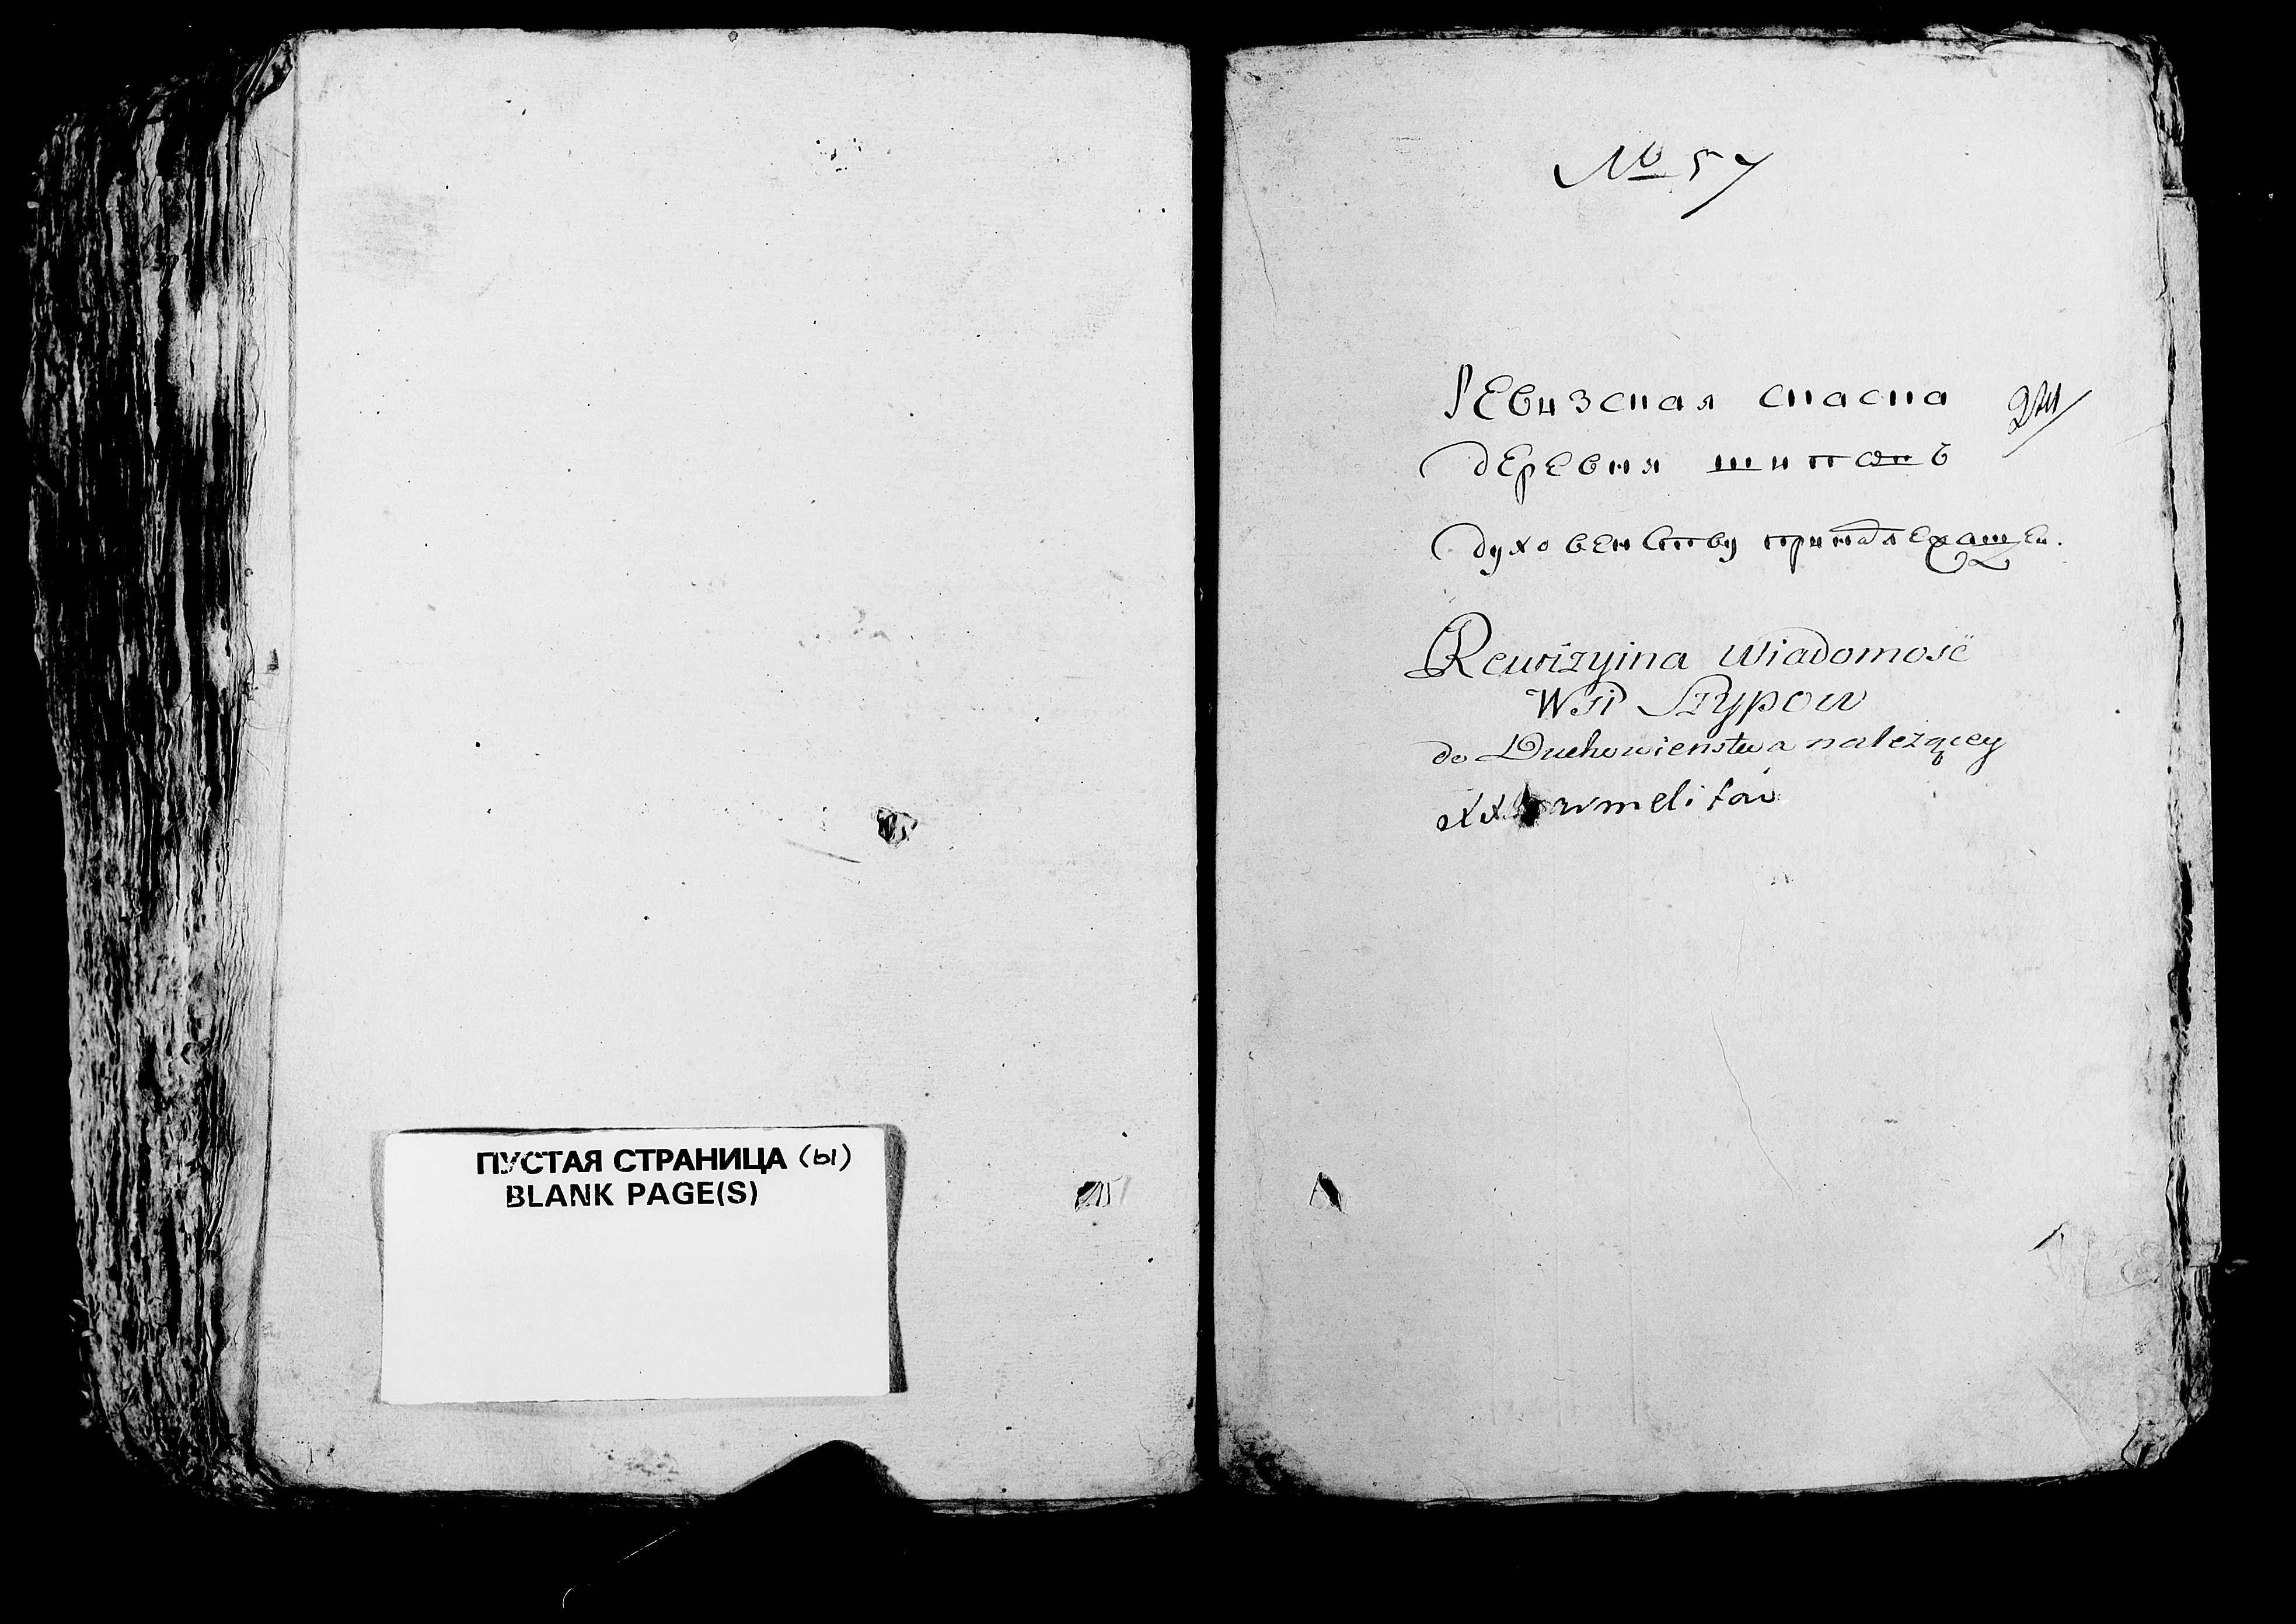 ПУСТАЯ СТРАНИЦА (ы)
BLANK PAGE(S)
№ 57
Ревизская скаска
деревня шиповъ
духовенству принадлежащеи.
Rewizyina Wiadomość
Wsi Szypow
do Duchowienstwa należącey